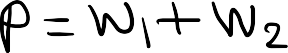 P = W₁ + W₂